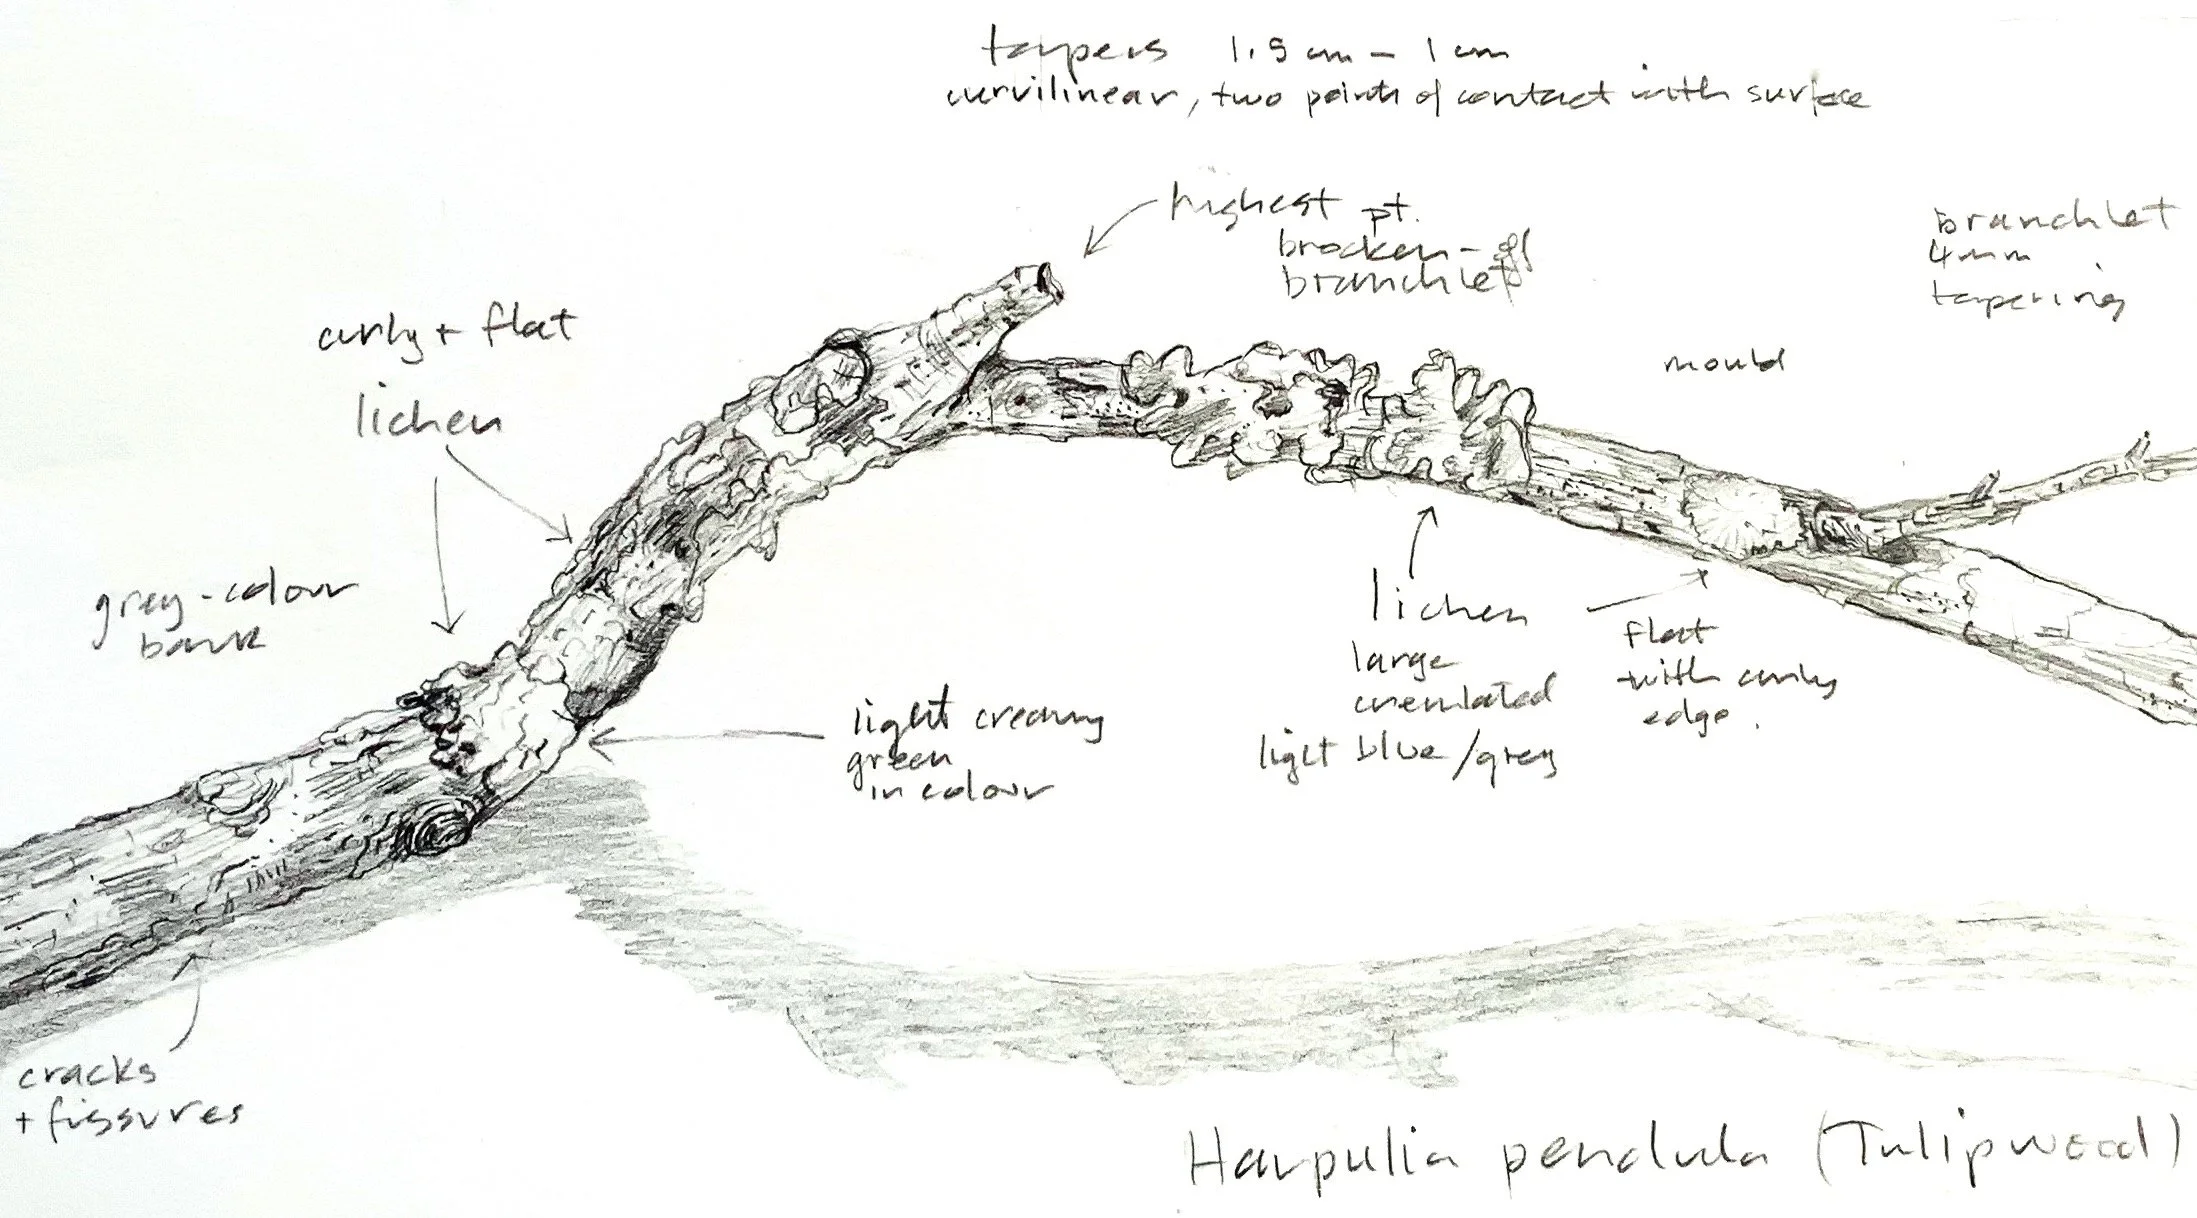 tapers 1.5 cm – 1 cm
curvilinear, two points of contact with surface
highest pt.
brocken-off
branchlet
branchlet
4mm
tapering
mould
curly + flat
lichen
grey-colour
bark
light creamy
green
in colour
lichen
large
crenulated
light blue/grey
flat
with curly
edge.
cracks
+ fissures
Harpulia pendula (Tulipwood)